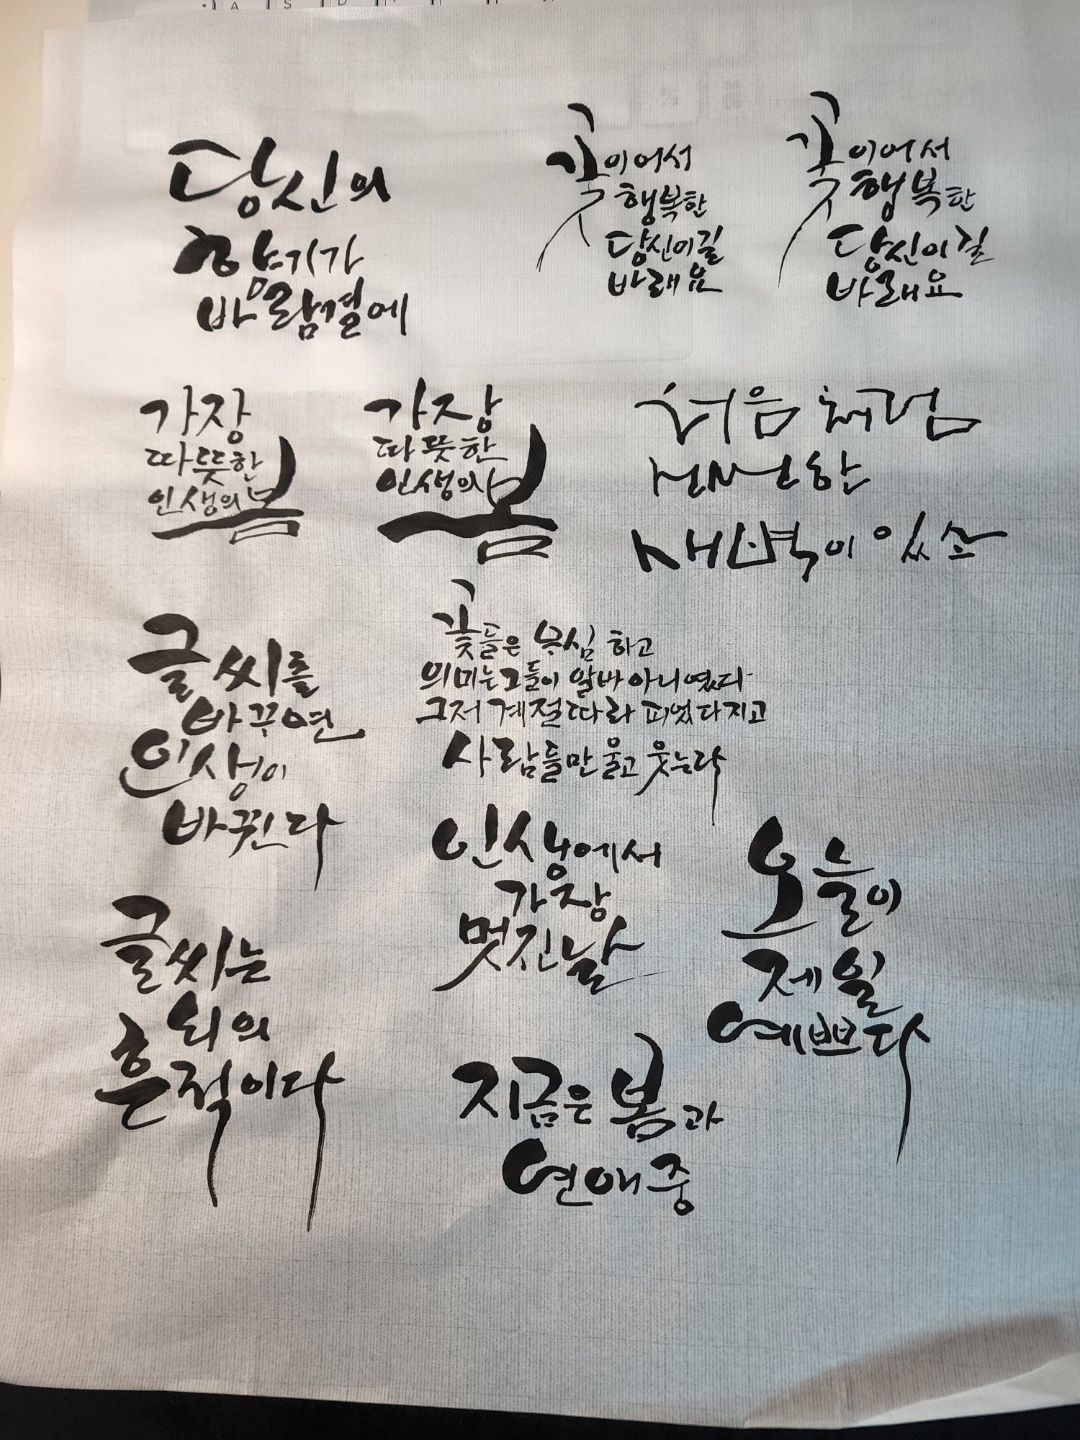 A S D
당신의
향기가
바람결에
꽃이어서
행복한
당신이길
바래요
꽃이어서
행복한
당신이길
바래요
가장
따뜻한
인생의 봄
가장
따뜻한
인생의 봄
처음처럼
한
새벽이 있소
글씨를
바꾸면
인생이
바뀐다
꽃들은 무심하고
의미는 그들이 알바 아니였다
그저 계절따라 피었다지고
사람들만 울고 웃는다
인생에서
가장
멋진날
오늘이
제일
예쁘다
글씨는
뇌의
흔적이다
지금은 봄과
연애중